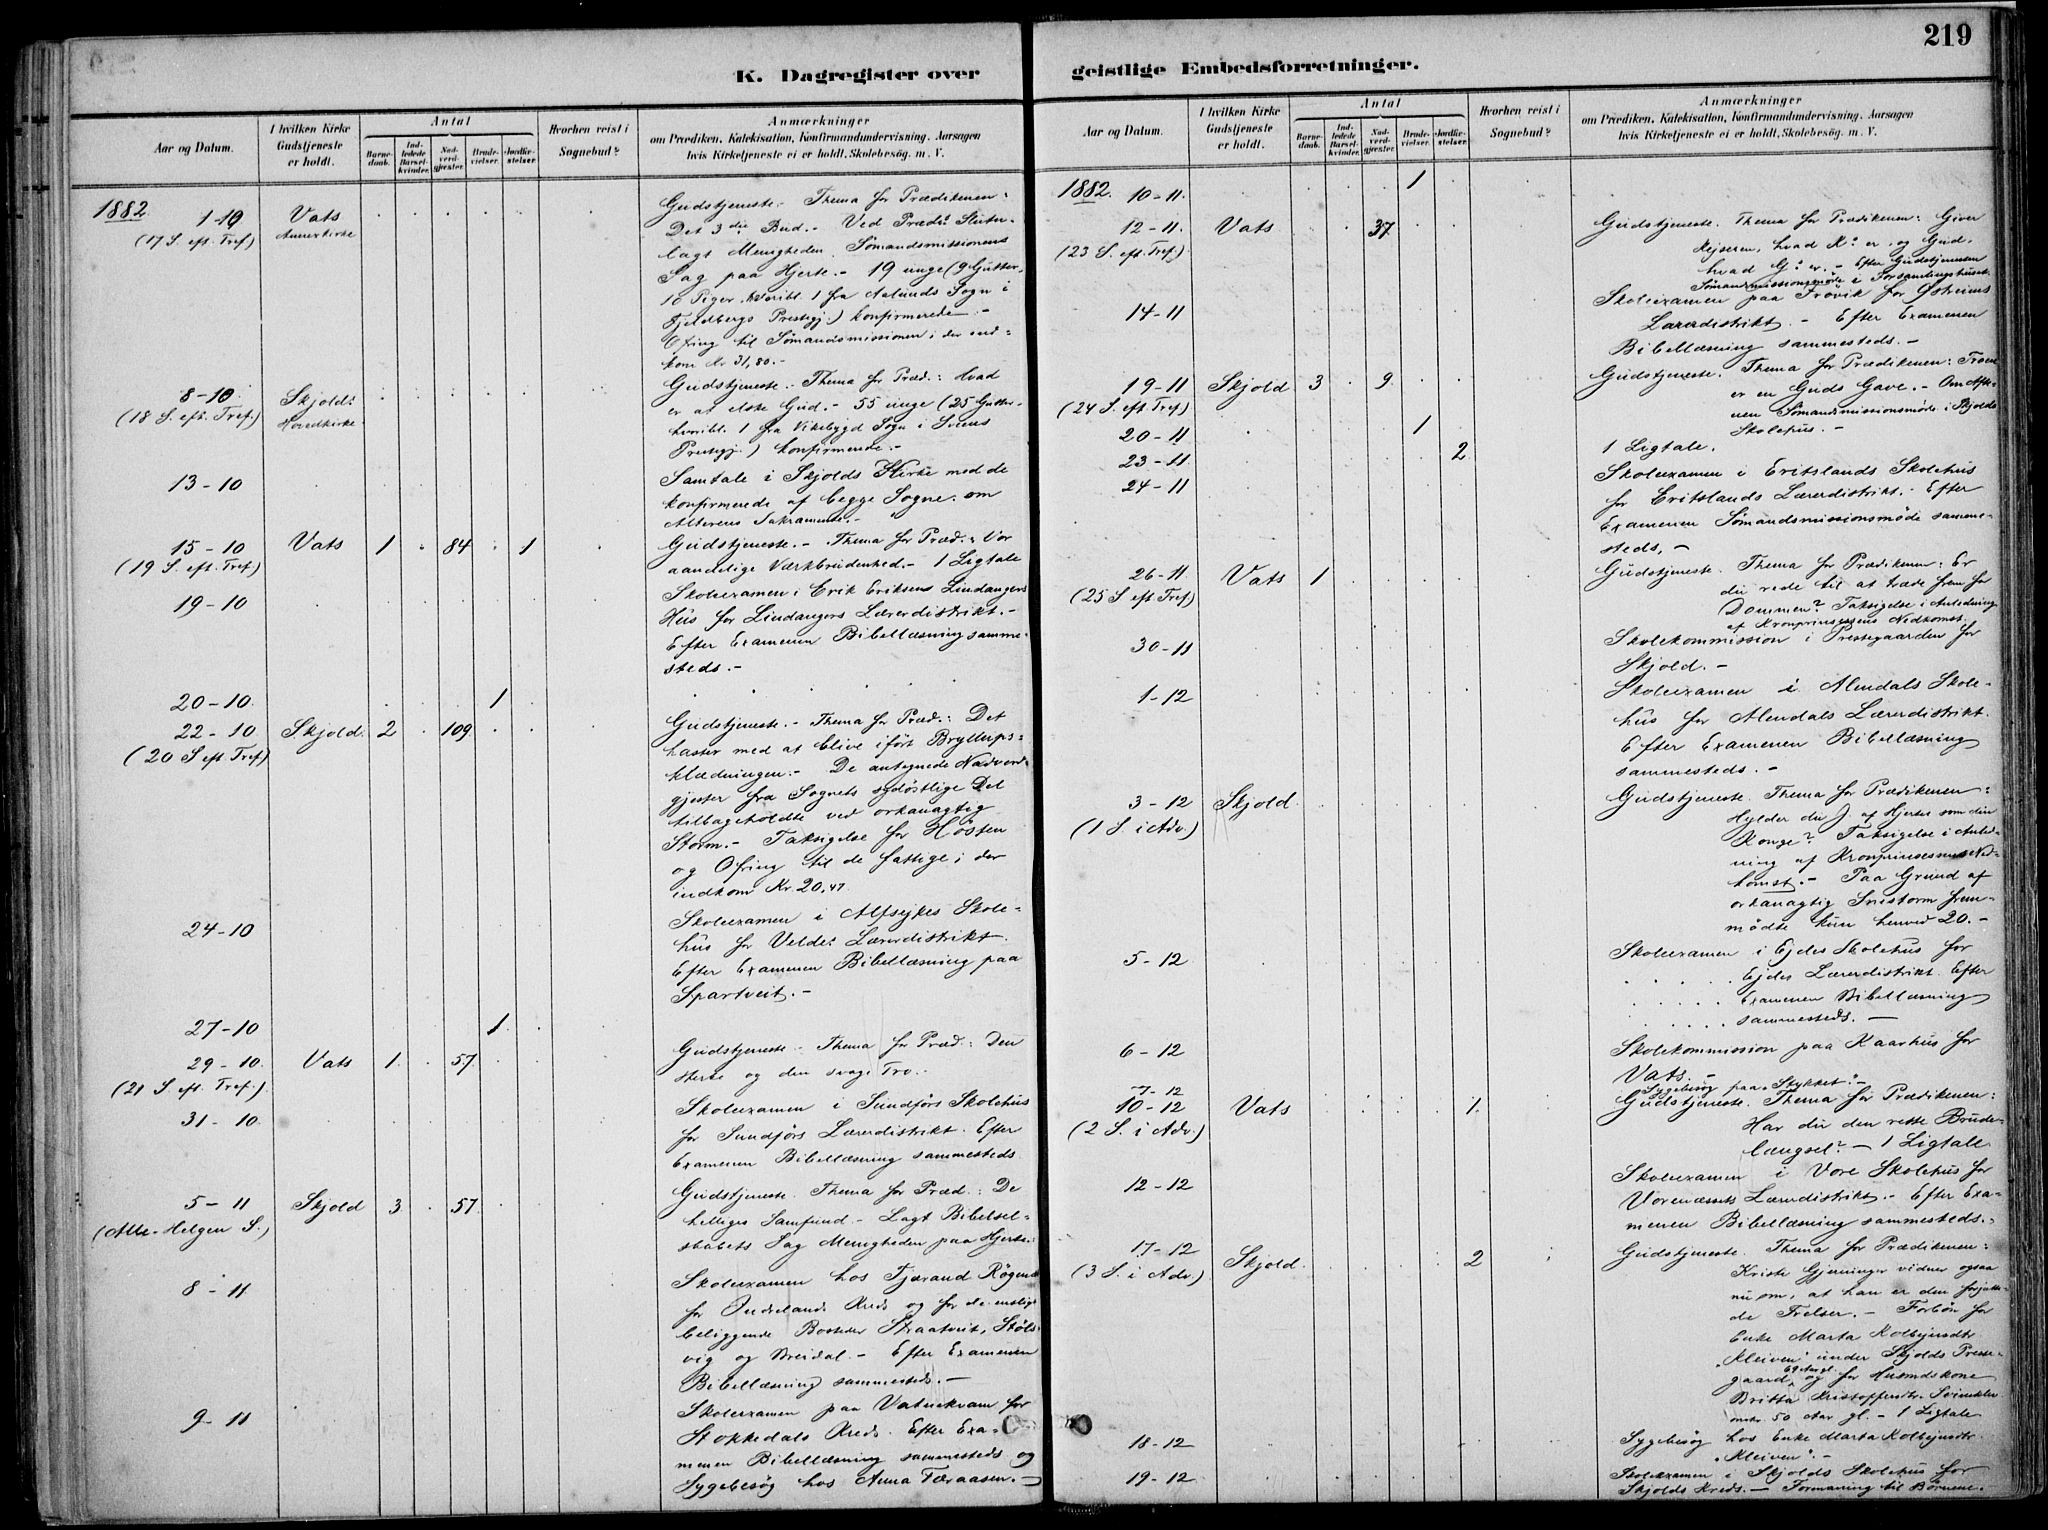 219
K. Dagregister over
Aar og Datum.
I hvilken Kirke Gudstjeneste er holdt.
Antal
Barne-daab.
Ind-ledede Barsel-kvinder.
Nad-verd-gjester.
Brude-vielser.
Jordfæ-stelser.
Hvorhen reist i Sognebud?
Anmærkninger
om Prædiken, Katekisation, Konfirmandundervisning. Aarsagen
hvis Kirketjeneste ei er holdt, Skolebesög. m. V.
1882 1-10 Vats Gudstjeneste.- Thema for Prædikenen:
(17 S. eft. Tref) Annexkirke Det 3die Bud.- Ved Præd.s Slut-
lagt Menigheden Sømandsmissionens
Sag paa Hjerte.- 19 unge (9 Gutter,
10 Piger, hvoribl. 1 fra Aalunds Sogn i
Fjeldbergs Prestegj.) konfirmerede.-
Ofring til Sømandsmissionen; der ind-
kom Kr 31,80.-
8-10 Skjold: Gudstjeneste.- Thema for Præd.: Hvad
(18 S. eft. Tref.) Hovedkirke er at elske Gud.- 55 unge (25 Gutter-
hvoribl. 1 fra Vikebygd Sogn i
Prestegj.) konfirmerede.-
13-10 Samtale i Skjolds Kirke med de
konfirmerede af begge Sogne om
Alterens Sakramente.-
15-10 Vats 1 84 1 Gudstjeneste.- Thema for Præd.: Vor
(19 S. eft. Tref) aandelige Værkbrudenhed.- 1 Ligtale
19-10 Skoleexamen i Erik Eriksens Lindangers
Hus for Lindangers Lærerdistrikt.-
Efter Examenen Bibellæsning samme-
steds.-
20-10. 1
22-10 Skjold 2 109 Gudstjeneste.- Thema for Præd.: Det
(20 S eft. Tref) haster med at blive iført Bryllups-
klædningen.- De antegnede Nadverd-
gjester fra Sognets sydøstlige Del
tilbageholdte ved orkanagtig
Storm.- Taksigelse for Høsten
og Ofring til de fattige; der
indkom Kr. 20,47
24-10 Skoleexamen i Alfsejkes Skole-
hus for Velde: Lærerdistrikt.
Efter Examenen Bibellæsning paa
Spartveit.-
27-10 1
29-10. Vats 1. 57. Gudstjeneste.- Thema for Præd.: Den
(21 S. eft. Tref.) sterke og den svage Tro.-
31-10. Skoleexamen i Sundførs Skolehus
for Sundførs Lærerdistrikt. Efter
Examenen Bibellæsning sammesteds.
5-11 Skjold 3. 57. Gudstjeneste. Thema for Præd.: De
(Alle-Helgen S.) helliges Samfund.- Lagt Bibelsel-
skabets Sag Menigheden paa Hjerte.
8-11 Skoleexamen hos Tjærand Røgenes
for Kreds og for de enslig
beliggende Bosteder Straatveit, Støls-
vig og Breidal.- Efter Examenen
Bibellæsning sammesteds.-
9-11 Skoleexamen paa Vatnekvam for
Stokkedals Kreds. Efter Exa-
menen Bibellæsning sammesteds og
Sygebesøg hos Anna Færaasen.-
geistlige Embedsforretninger.
Aar og Datum.
I hvilken Kirke Gudstjeneste er holdt.
Antal
Barne-daab.
Ind-ledede Barsel-kvinder.
Nad-verd-gjester.
Brude-vielser.
Jordfæ-stelser.
Hvorhen reist i Sognebud?
Anmærkninger
om Prædiken, Katekisation, Konfirmandundervisning. Aarsagen
hvis Kirketjeneste ei er holdt, Skolebesög. m. V.
1882. 10-11. 1
12-11. Vats 37. Gudstjeneste. Thema for Prædikenen: Giver
(23 S. eft. Tref) Kejseren, hvad K.s er, og Gud,
hvad G.s er.- Efter Gudstjenesten
Sømandsmissionsmøde i Forsamlingshuset.
14-11 Skoleexamen paa Frøvik for Østreims
Lærerdistrikt.- Efter Examenen
Bibellæsning sammesteds.-
19-11 Skjold 3 9 Gudstjeneste. Thema for Prædikenen: Troen
(24 S. eft. Tref) er en Guds Gave.- Om Afte-
nen Sømandsmissionsmøde i Skjolds
Skolehus.-
20-11 1
23-11 2 1 Ligtale.
24-11 Skoleexamen i Eritslands Skolehus
for Eritslands Lærerdistrikt.- Efter
Examenen Sømandsmissionsmøde samme-
steds.-
26-11 Vats 1 Gudstjeneste. Thema for Prædikenen: Er
(25 S. eft Tref) du rede til at træde frem for
Dommen? Taksigelse i Anledning
af Kronprinsessens Nedkomst.
30-11 Skolekommission i Prestegaarden for
Skjold.-
1-12 Skoleexamen i Alendals Skole-
hus for Alendals Lærerdistrikt.
Efter Examenen Bibellæsning
sammesteds.-
3-12 Skjold. Gudstjeneste. Thema for Prædikenen:
(1 S. i Adv.) Hylder du J. af Hjertet som din
Konge? Taksigelse i Anled-
ning af Kronprinsessens Ned-
komst.- Paa Grund af
orkanagtig Snestorm frem-
mødte kun henved 20.-
5-12 Skoleexamen i Ejdes Skolehus for
Ejdes Lærerdistrikt. Efter
Examenen Bibellæsning
sammesteds.-
6-12 Skolekommission paa Kaarhus for
Vats.-
7-12 Sygebesøg paa "Stykket".-
10-12 Vats 1. Gudstjeneste. Thema for Prædikenen:
(2 S. i Adv.) Har du den rette Brude-
længsel?- 1 Ligtale
12-12 Skoleexamen i Vore Skolehus for
Vorenæsets Lærerdistrikt.- Efter Exa-
menen Bibellæsning sammesteds.-
17-12 Skjold. 2 Gudstjeneste. Thema for Prædikenen:
(3 S. i Adv) Kristi Gjerninger vidner ogsaa
nu om, at han er den forjætte-
de Frelser.- Forbøn for
Enke Marta Kolbejnsdtr
"Kleiven" under Skjolds Preste-
gaard, 69 Aar gl. og for Husmdskone
Britta Kristoffersdtr.
50 Aar gl.- 1 Ligtale
18-12 Sygebesøg hos Enke Marta Kolbejnsdtr
"Kleiven".-
19-12 Skoleexamen i Skjolds Skolehus for
Skjolds Kreds.- Formaning til Børnene.-